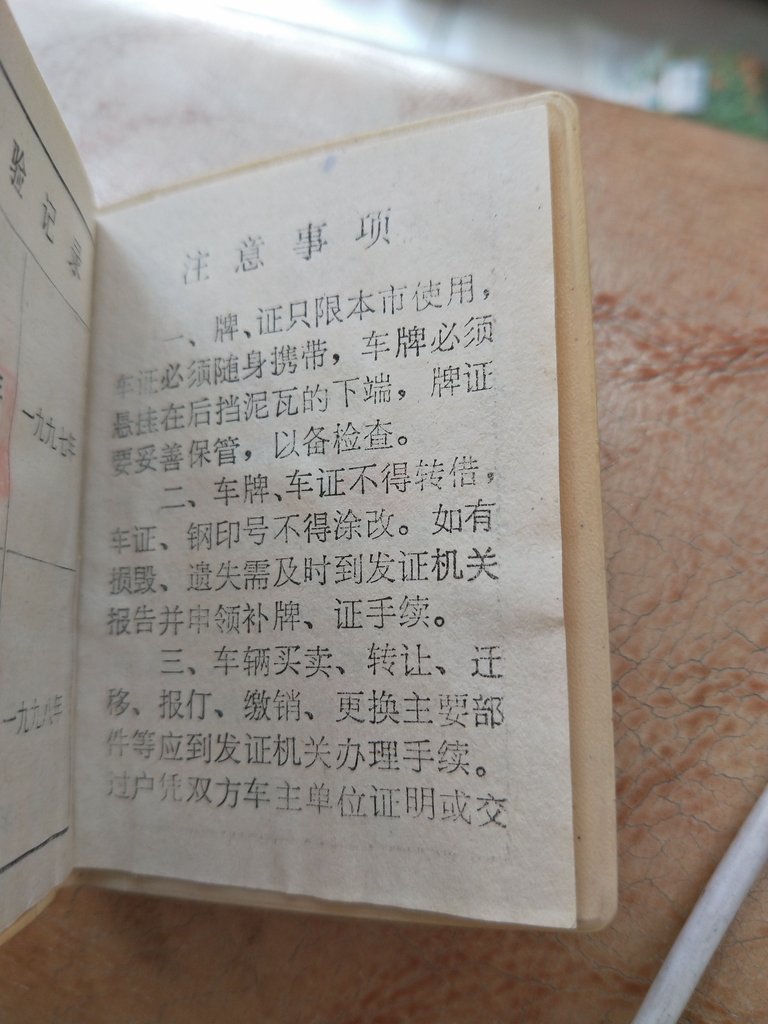 验记录
一九九七年
一九九八年
注意事项
一、牌、证只限本市使用，
车证必须随身携带，车牌必须
悬挂在后挡泥瓦的下端，牌证
要妥善保管，以备检查。
二、车牌、车证不得转借，
车证、钢印号不得涂改。如有
损毁、遗失需及时到发证机关
报告并申领补牌、证手续。
三、车辆买卖、转让、迁
移、报仃、缴销、更换主要部
件等应到发证机关办理手续。
过户凭双方车主单位证明或交